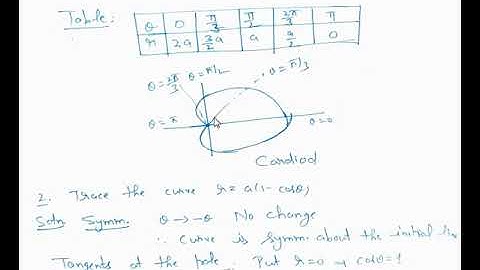 Table:
θ 0 π/3 π/2 2π/3 π
r 2a 3/2 a a a/2 0
θ = π/2
θ = π/3
θ = 2π/3
θ = π
θ = 0
Cardiod
2. Trace the curve r = a(1 - cosθ)
Soln Symm. θ → -θ No change
∴ Curve is symm. about the initial
Tangents at the pole. Put r = 0 ⇒ cosθ = 1